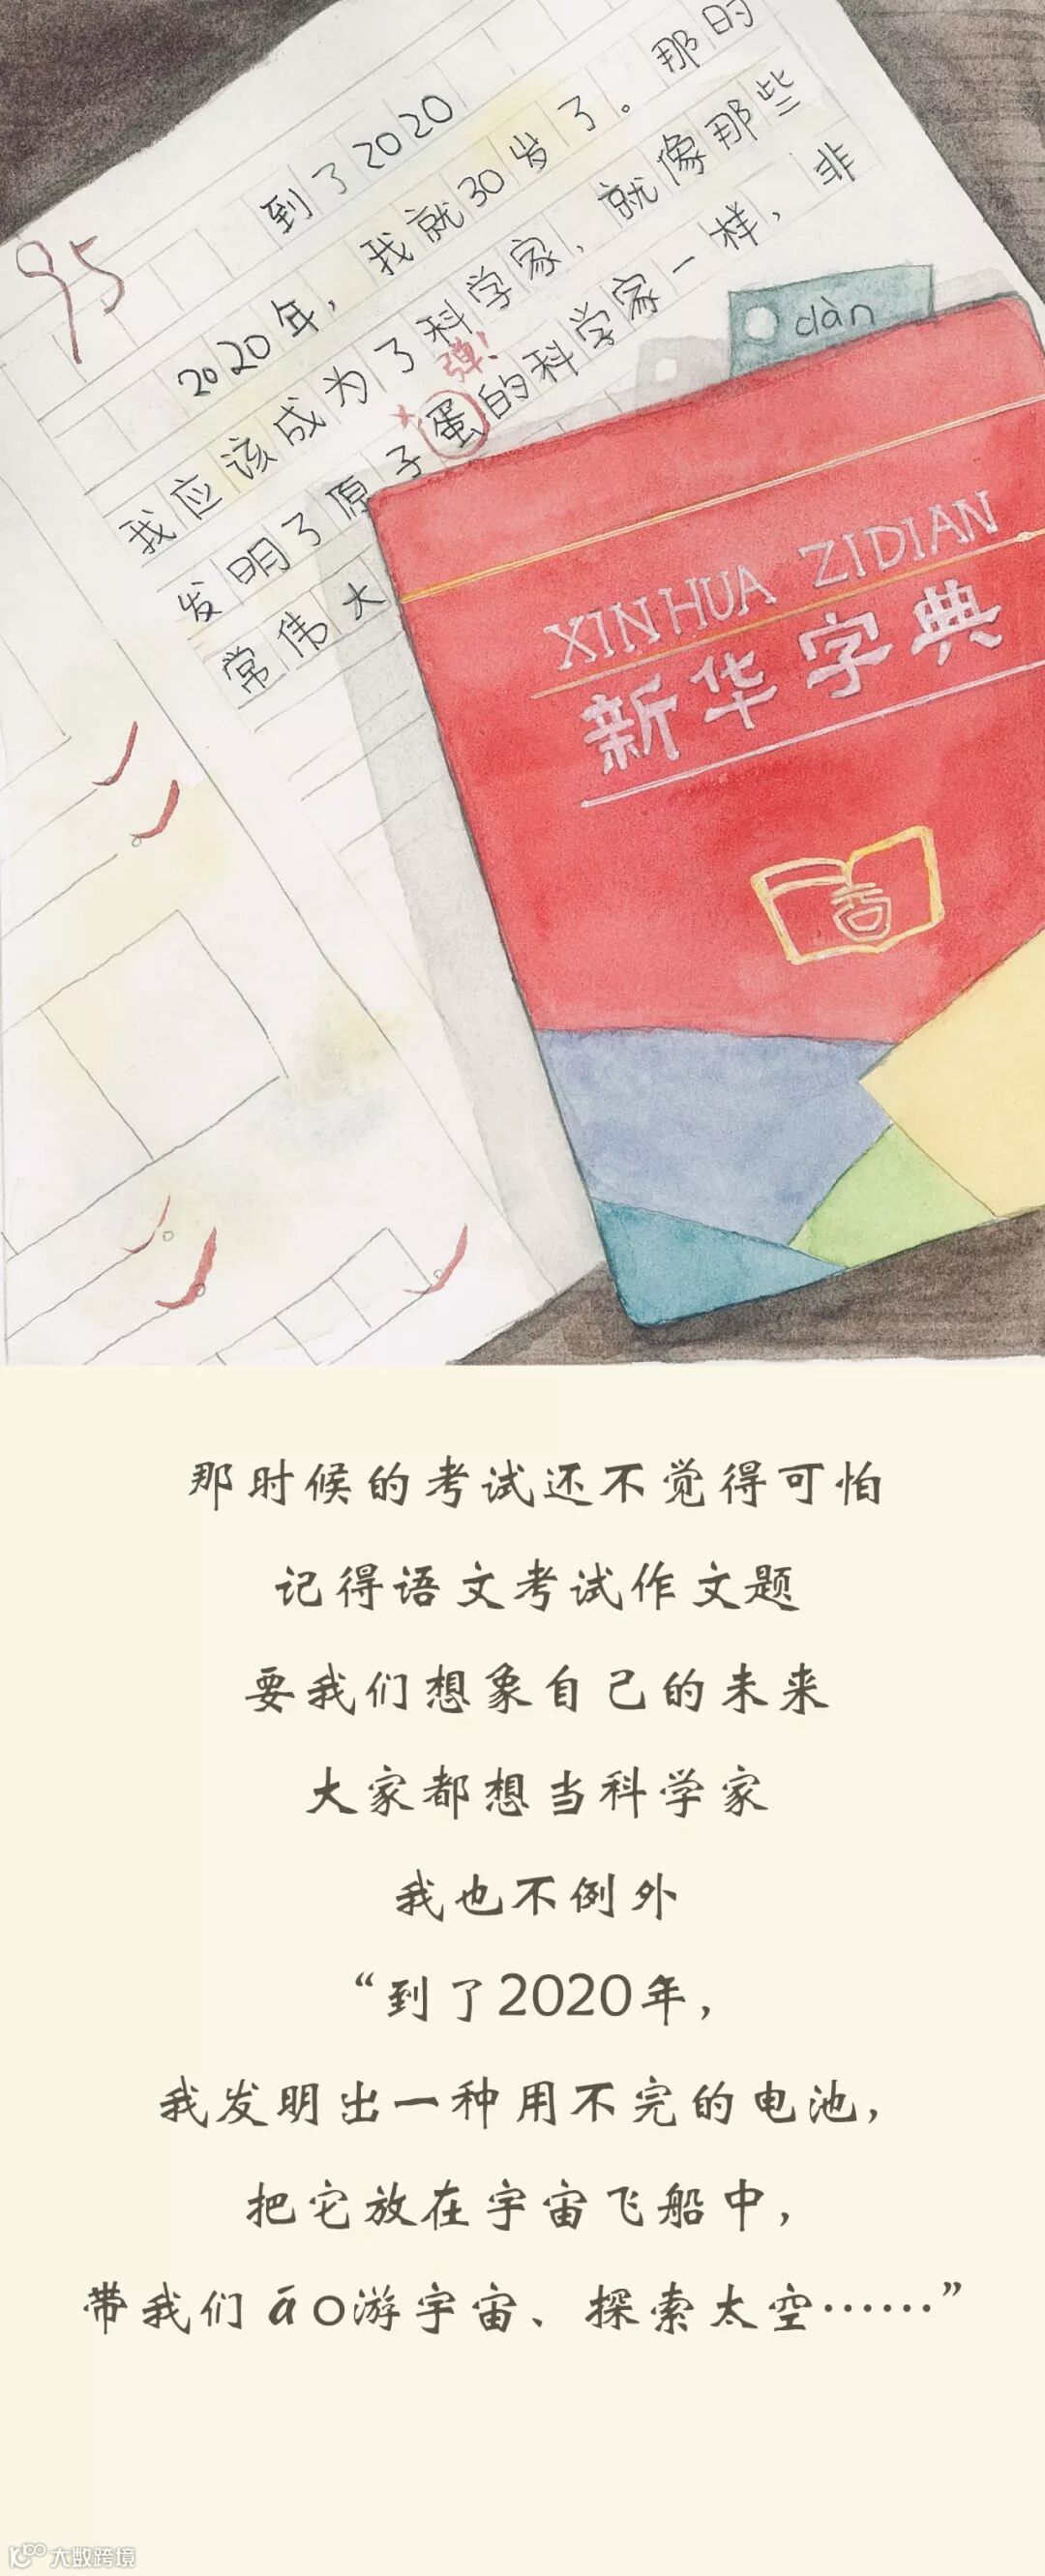 到了2020
95
2020年，我就30岁了。那时
我应该成为了科学家，就像那些
弹！
发明了原子蛋的科学家一样，非
常伟大
dàn
XINHUA ZIDIAN
新华字典
那时候的考试还不觉得可怕
记得语文考试作文题
要我们想象自己的未来
大家都想当科学家
我也不例外
“到了2020年，
我发明出一种用不完的电池，
把它放在宇宙飞船中，
带我们āo游宇宙、探索太空……”
大数跨境